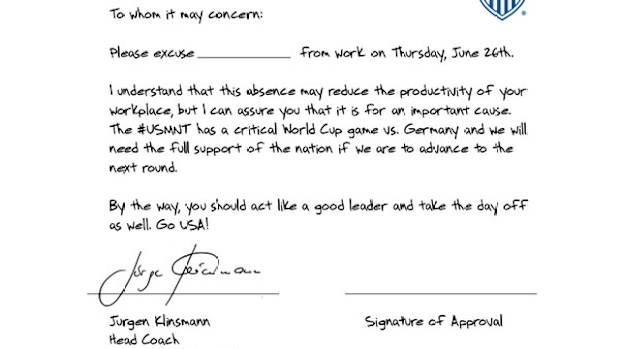 To whom it may concern:
Please excuse ______________ from work on Thursday, June 26th.
I understand that this absence may reduce the productivity of your
workplace, but I can assure you that it is for an important cause.
The #USMNT has a critical World Cup game vs. Germany and we will
need the full support of the nation if we are to advance to the
next round.
By the way, you should act like a good leader and take the day off
as well. Go USA!
Jurgen Klinsmann
Signature of Approval
Head Coach